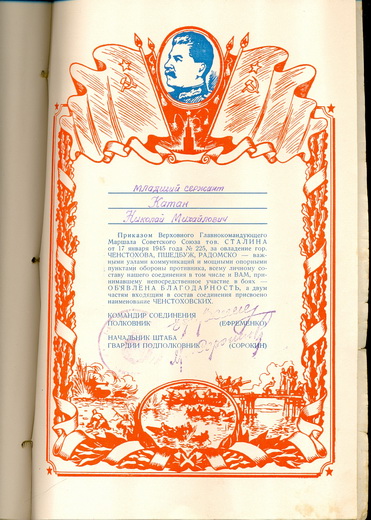 Младший сержант
Катан
Николай Михайлович
Приказом Верховного Главнокомандующего
Маршала Советского Союза тов. СТАЛИНА
от 17 января 1945 года № 225, за овладение гор.
ЧЕНСТОХОВА, ПШЕДБУЖ, РАДОМСКО — важ-
ными узлами коммуникаций и мощными опорными
пунктами обороны противника, всему личному со-
ставу нашего соединения в том числе и ВАМ, при-
нимавшему непосредственное участие в боях —
ОБЪЯВЛЕНА БЛАГОДАРНОСТЬ, а двум
частям входящим в состав соединения присвоено
наименование ЧЕНСТОХОВСКИХ.
КОМАНДИР СОЕДИНЕНИЯ
ПОЛКОВНИК (ЕФРЕМЕНКО)
НАЧАЛЬНИК ШТАБА
ГВАРДИИ ПОДПОЛКОВНИК (СОРОКИН)